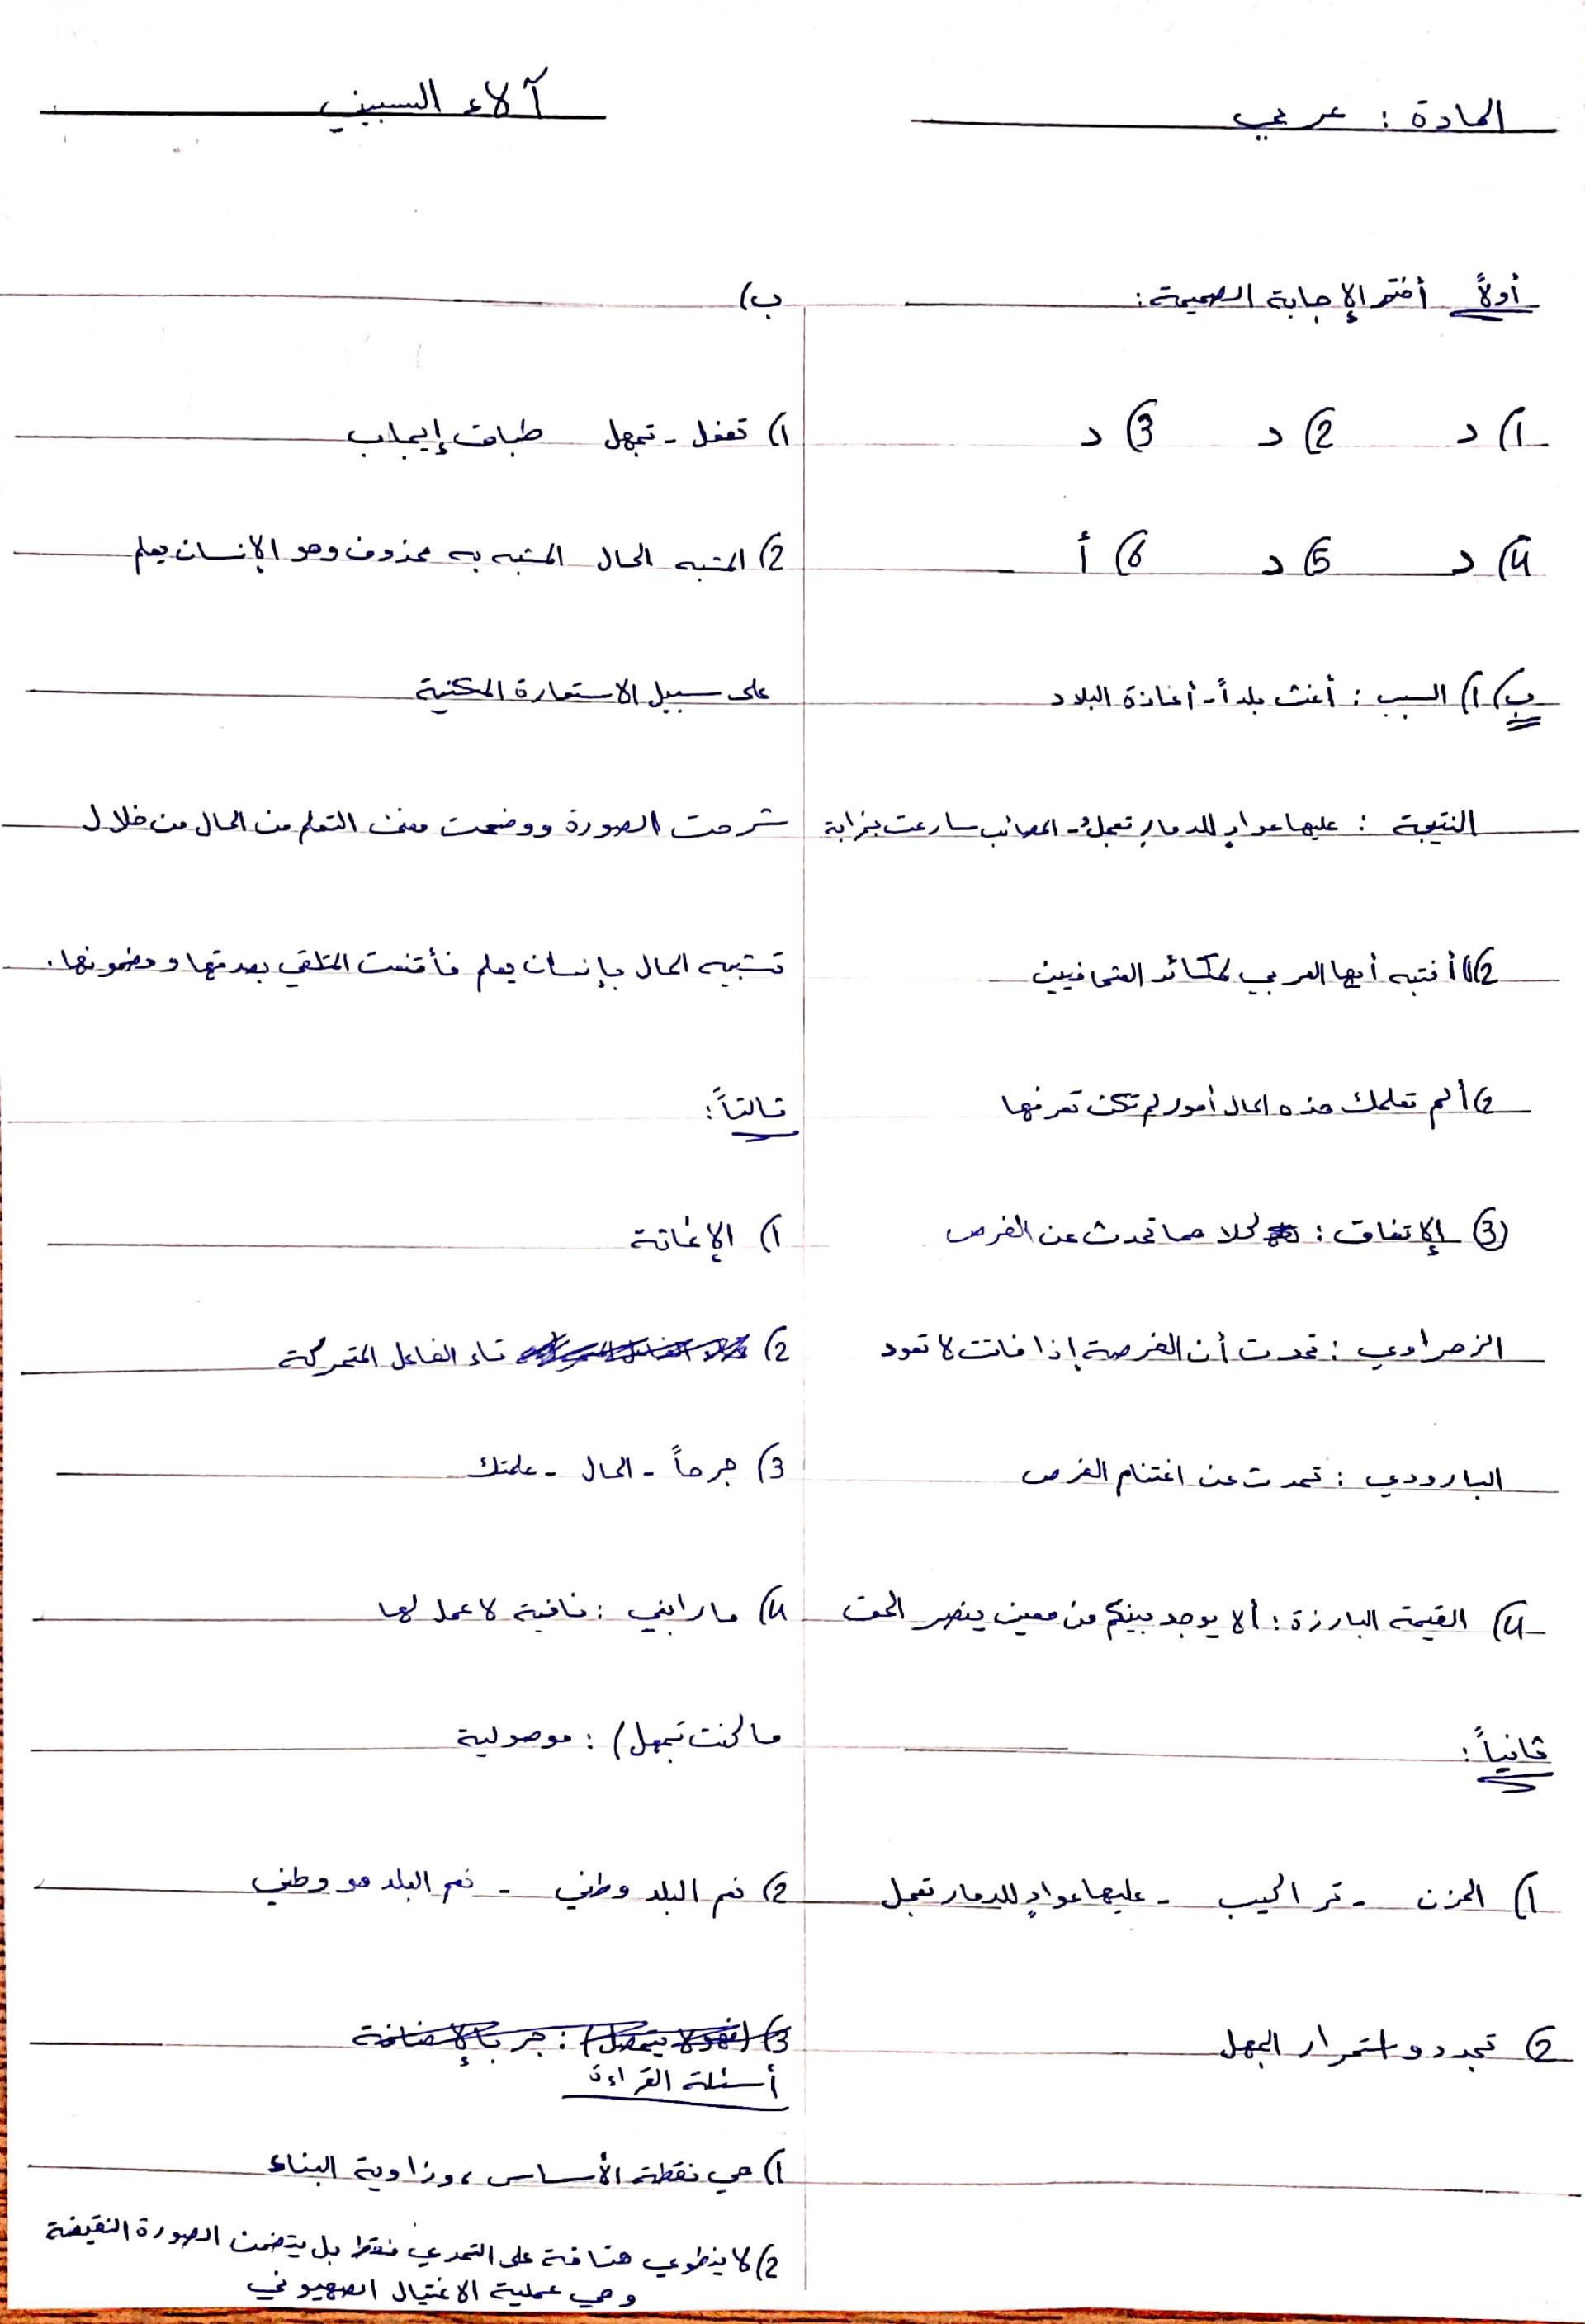 المادة : عربي
آلاء السبيني
أولاً أختر الإجابة الصحيحة :
1) د 2) د 3) د
4) د 5) د 6) أ
ب) 1) السبب : أغث بلداً - أغاثة البلاد
النتيجة : عليها عوادٍ للدمار تعجلُ - المصائب سارعت بخرابة
2) 1) أنتبه أيها العربي لمكائد العثمانيين
2) ألم تعلمك هذه الحال أمور لم تكن تعرفها
3) الإتفاق : كلا هما تحدث عن الفرص
الزهراوي : تحدث أن الفرصة إذا فاتت لا تعود
البارودي : تحدث عن اغتنام الفرص
4) القيمة البارزة : ألا يوجد بينكم من معين ينصر الحق
ثانياً :
1) الحزن - تراكيب - عليها عوادٍ للدمار تعجل
2) تجدد و استمرار الجهل
ب)
1) تعقل - تجهل طباق إيجاب
2) المشبه الحال المشبه به محذوف وهو الإنسان يعلم
على سبيل الاستعارة المكنية
شرحت الصورة ووضحت معنى التعلم من الحال من خلال
تشبيه الحال بإنسان يعلم فأقنعت المتلقي بصدقها ومضمونها .
ثالثاً :
1) الإغاثة
2) تاء الفاعل المتحركة
3) جرحاً - الحال - علمتك
4) ما رابني : نافية لا عمل لها
ما كنت تجهل) : موصولية
2) نعم البلد وطني - نعم البلد هو وطني
3) : جر بالإضافة
أسئلة القراءة
1) هي نقطة الأساس ، وزاوية البناء
2) لا ينطوي هتافة على التحدي فقط بل يتضمن الصورة النقيضة
وهي عملية الاغتيال الصهيوني